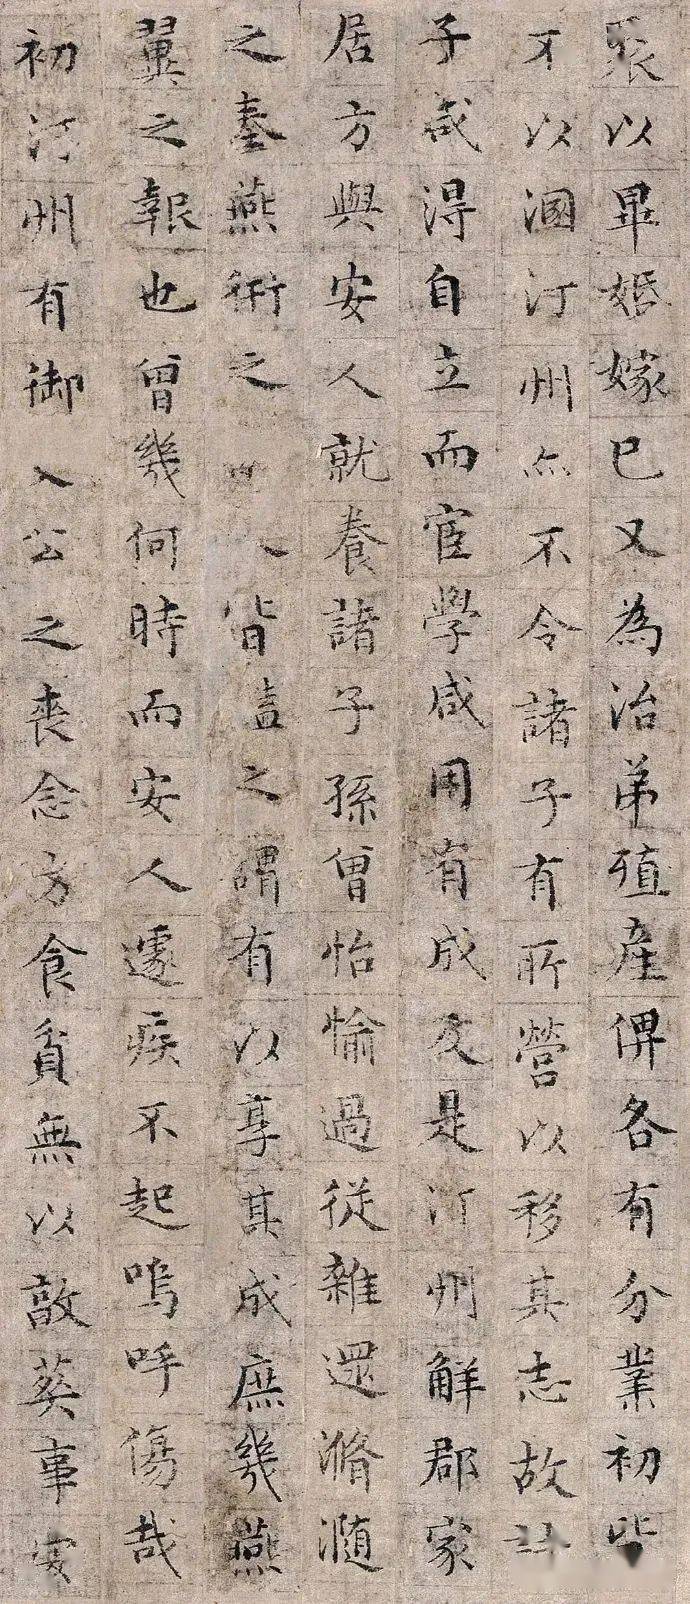 以畢婚嫁已又為治弟殖産俾各有分業初
不以溷汀州亦不令諸子有所營以移其志故
子咸得自立而宦學咸用有成及是汀州解郡家
居方與安人就養諸子孫曾怡愉過從雜遝滫瀡
之奉燕衎之人皆之謂有以享其成庶幾燕
翼之報也曾幾何時而安人遽疾不起嗚呼傷哉
初汀州有御公之喪念方食貧無以敦葬事安